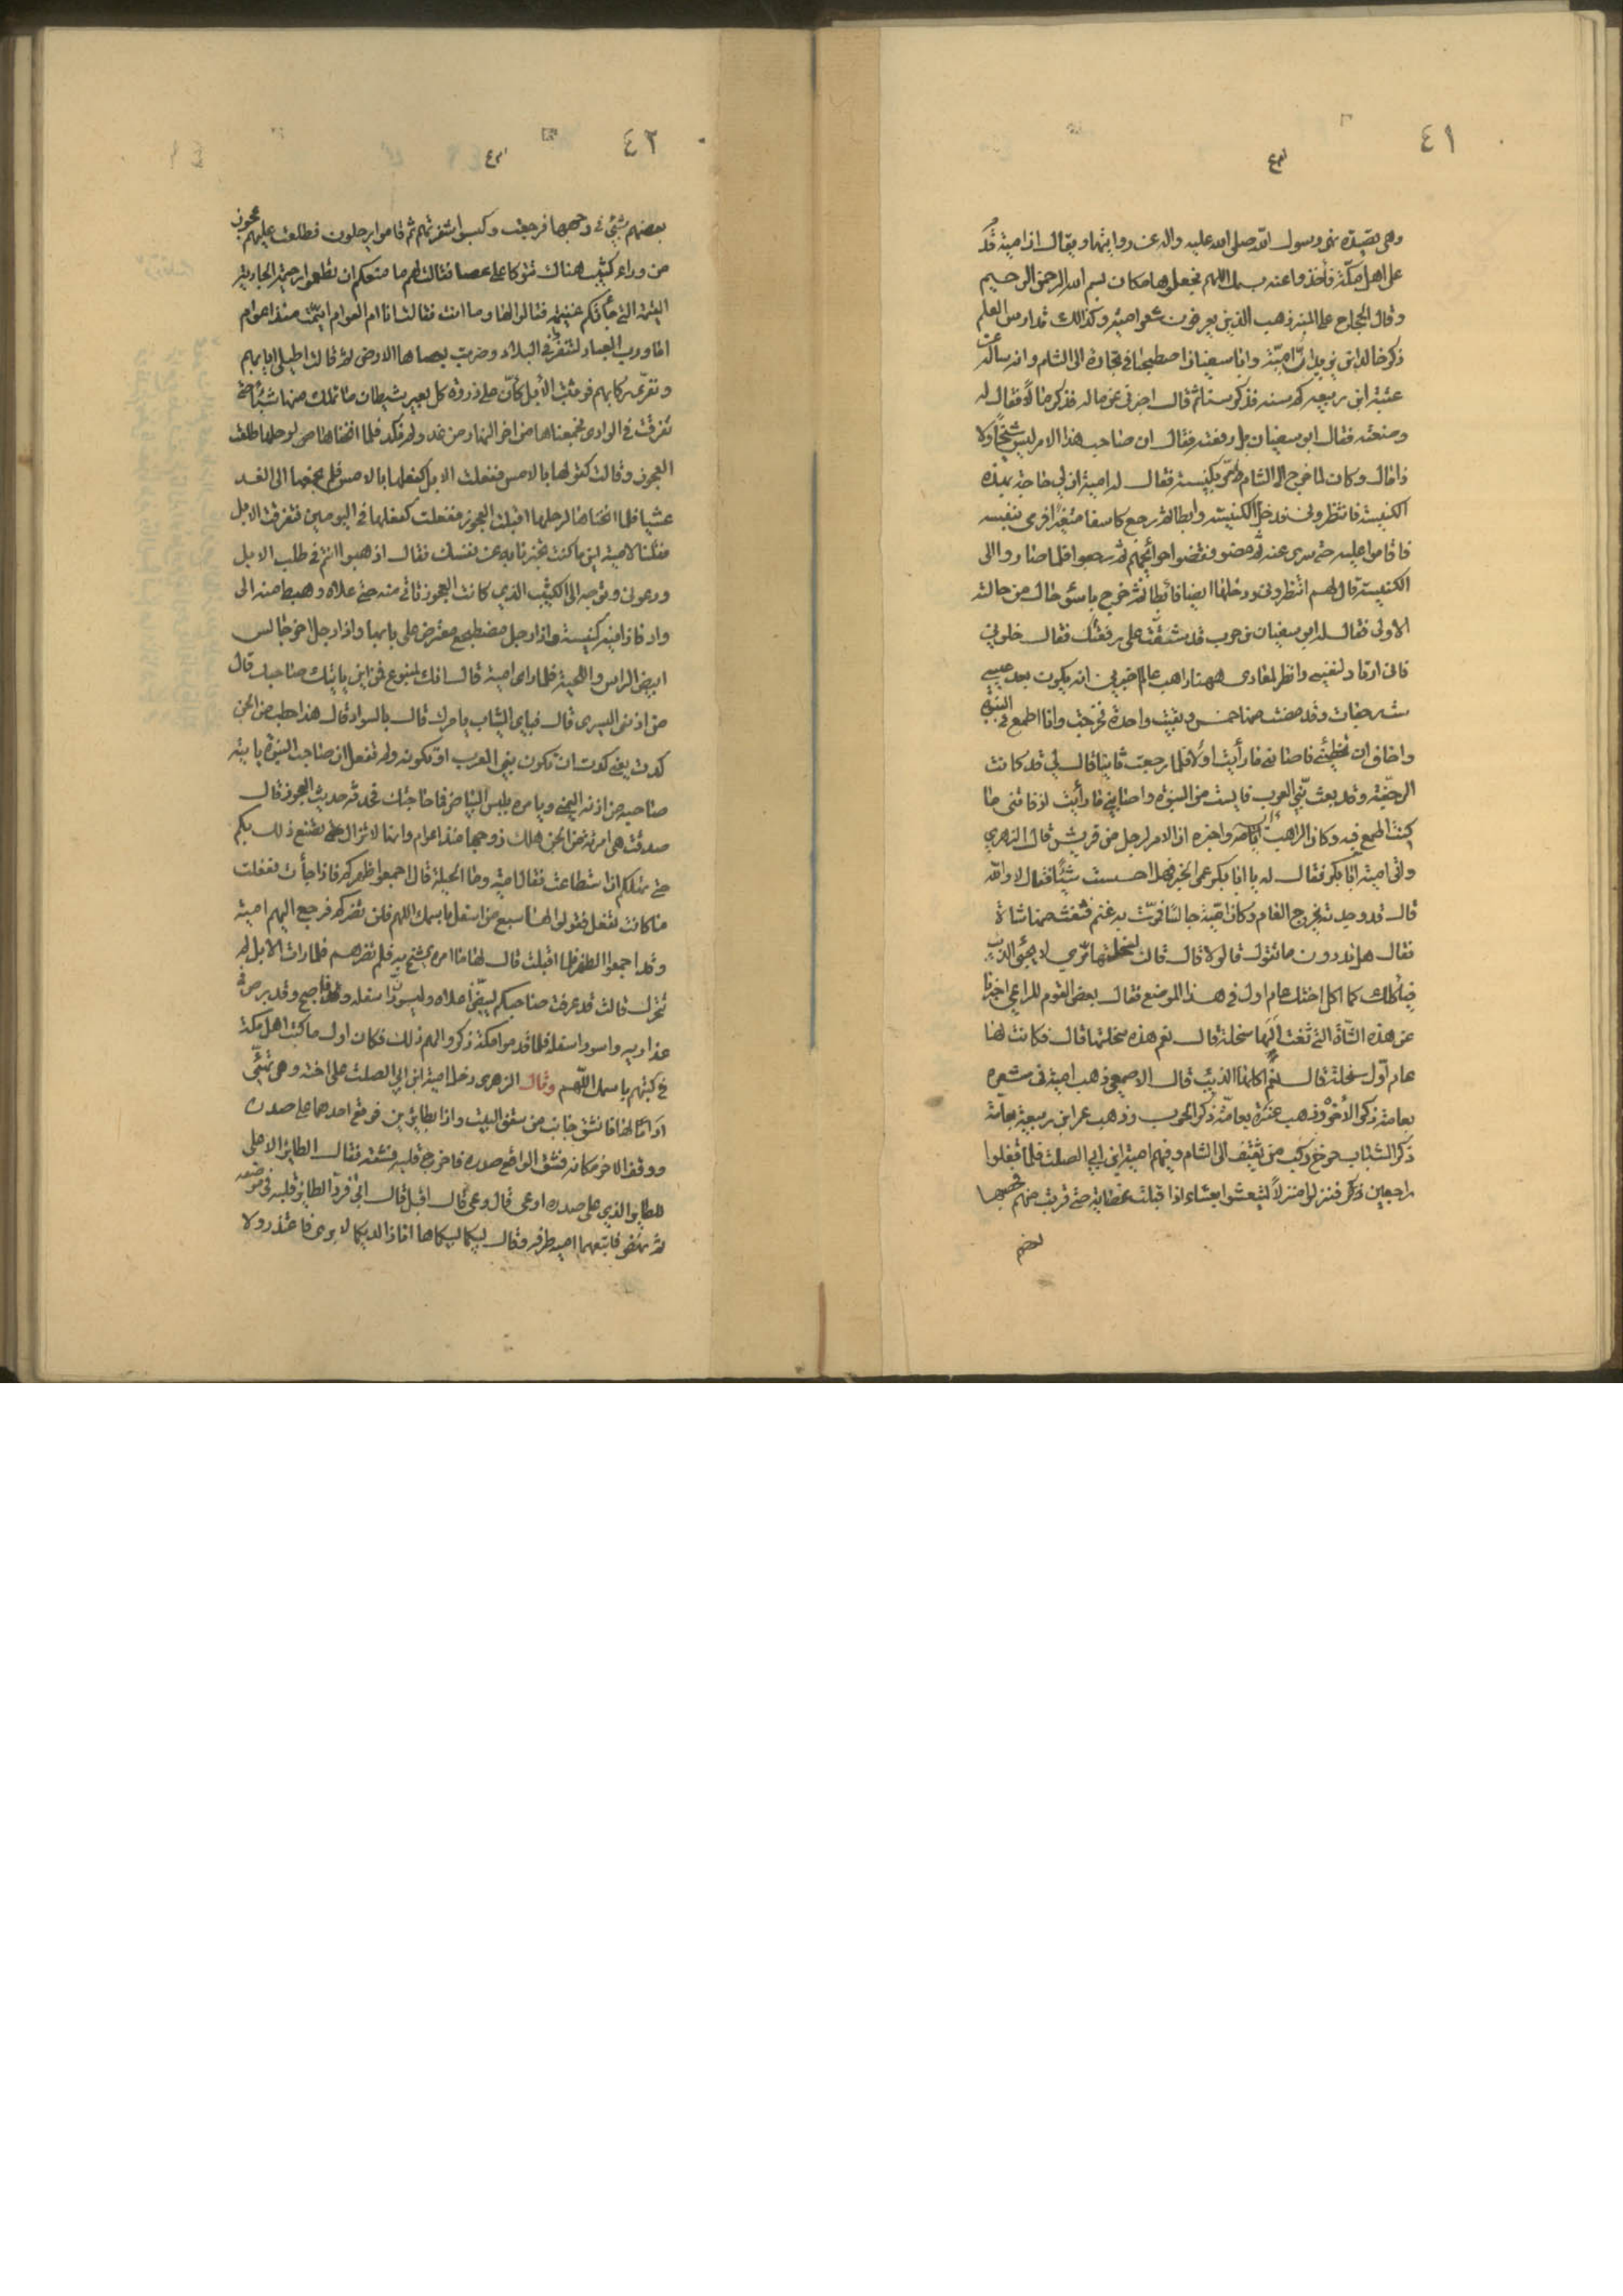 ٤١
وهي قصيدة نهى رسول الله صلى الله عليه واله عن روايتها ويقال ان امية قدم
على اهل مكة فأخذوا عنه بسمك اللهم فجعلوها مكان بسم الله الرحمن الرحيم
وقال الحجاج على المنبر ذهب الذين يعرفون شعر امية وكذلك تدارس العلم
ذكر خالد ابن يزيد ان امية وابا سفيان اصطحبا في تجارة الى الشام وانه ساله عن
عتبة ابن ربيعة كم سنه فذكر سنا ثم قال اخبرني عن ماله فذكر مالاً فقال له
وضعته فقال ابو سفيان بل رفعته فقال ان صاحب هذا الامر ليس شيخ ولا
ذا مال وكان لما خرج الى الشام مر بكنيسة فقال له امية ان لي حاجة بهذه
الكنيسة فانتظروني فدخل الكنيسة وابطا ثم رجع كاسفا متغيرا فرمى بنفسه
فاقاموا عليه حتى سري عنه ثم مضوا فقضوا حوائجهم ثم رجعوا فلما صاروا الى
الكنيسة قال لهم انتظروني ودخلها ايضا فأبطا ثم خرج باسوء حال من حالته
الاولى فقال له ابو سفيان بن حرب قد شققت على رفقتك فقال خلوني
فاني ارتاد لنفسي وانظر لمعادي ههنا راهب عالم اخبرني انه يكون بعد عيسى
ست رجفات وقد مضت منها خمس وبقيت واحدة فخرجت وانا اطمع في النبوة
واخاف ان تخطيني فاصابني ما رأيت اولا فلما رجعت ثانيا قال لي قد كانت
الرجفة وقد بعث نبي العرب فايست من النبوة واصابني ما رأيت اذ فاتني ما
كنت اطمع فيه وكان الراهب واخبره ان الامر لرجل من قريش قال الزهري
واتى امية ابا بكر فقال له يا ابا بكر عمى الخبر فهل احسست شيئا فقال لا والله
قال قد وجدته يخرج العام وكان امية جالسا فمرت به غنم فثغت منها شاة
فقال هل تدرون ما تقول قالوا لا قال قالت لسخلتها مري لا يجئ الذئب
فيأكلك كما اكل اختك عام اول في هذا الموضع فقال بعض القوم للراعي اخبرنا
عن هذه الشاة التي ثغت ألها سخلة قال نعم هذه سخلتها قال فكانت لها
عام اول سخلة قال نعم اكلها الذئب قال الاصمعي ذهب امية في شعره
بعامة ذكر الاخرة وذهب عنترة بعامة ذكر الحرب وذهب عمر ابن ربيعة بعامة
ذكر الشباب خرج ركب من ثقيف الى الشام وفيهم امية ابن ابي الصلت فلما قفلوا
راجعين فنزلوا منزلاً ليتعشوا بعشاء اذا قبلت عظاية حتى قربت منهم فحصبها
بعضهم
٤٢
بعضهم بشئ في وجهها فرجعت وكبسوا سفرتهم ثم قاموا يرحلون فطلعت عليهم عجوز
من وراء كثيب هناك تتوكا على عصا فقالت لهم ما منعكم ان تطعموا رحيمة الجارية
اليتيمة التي جأتكم عشية فقالوا لها وما انت فقالت انا ام العوام ايمت منذ اعوام
اما ورب العباد لتتفرقن في البلاد وضربت بعصاها الارض ثم قالت اطيلي ايابهم
ونفري ركابهم فوثبت الأبل كأن على ذروة كل بعير شيطان ما نملك منها شيئا حتى
تفرقت في الوادي فجمعناها من اخر النهار من غد ولم نكد فلما انخناها لنرحلها طلعت
العجوز وقالت كقولها بالامس ففعلت الابل كفعلها بالامس فلم نجمعها الى الغد
عشيا فلما انخناها لنرحلها اقبلت العجوز ففعلت كفعلها في اليومين فتفرقت الابل
فقلنا لامية اين ما كنت تخبرنا به عن نفسك فقال اذهبوا انتم في طلب الابل
ودعوني وتوجه الى الكثيب الذي كانت العجوز تأتي منه حتى علاه وهبط منه الى
واد فاذا فيه كنيسة واذا رجل مضطجع معترض على بابها واذا رجل اخر جالس
ابيض الراس واللحية فلما راى امية قال انك لمتبوع فمن اين يأتيك صاحبك قال
من اذني اليسرى قال فباي الثياب يأمرك قال بالسواد قال هذا خطيب من الجن
كدت يعني كدت ان تكون نبي العرب او تكونه ولم تفعل ان صاحب النبوة يأتيه
صاحبه من اذنه اليمنى ويأمره بلبس البياض فما حاجتك فحدثه حديث العجوز قال
صدقت هي امرئة من الجن هلك زوجها منذ اعوام وانها لا تزال تصنع ذلك بكم
حتى تهلككم ان استطاعت فقال امية وما الحيلة قال اجمعوا ظهركم فاذا جأت ففعلت
ما كانت تفعل فقولوا لها سبع من اسفل باسمك اللهم فلن تضركم فرجع اليهم امية
وقد اجمعوا الظهر فلما اقبلت قال لها ما امره الشيخ به فلم تضرهم فلما رات الابل لم
تتحرك قالت قد عرفت صاحبكم ليبيضن اعلاه وليسودن اسفله فاصبح وقد برص في
عذاريه واسود اسفله فلما قدموا مكة ذكروا لهم ذلك فكان اول ما كتب اهل مكة
في كتبهم باسمك اللهم وقال الزهري دخل امية ابن ابي الصلت على اخته وهي تهيئ
ادما لها فانشق جانب من سقف البيت واذا بطائرين فوقع احدهما على صدره
ووقف الاخر مكانه فشق الواقع صدره فاخرج قلبه فشقه فقال الطائر الاعلى
للطائر الذي على صدره اوعى قال وعى قال اقبل قال ابى فرد الطائر قلبه في موضعه
ثم نهض فاتبعهما امية طرفه وقال لبيكما لبيكما ها انا ذا لديكما لا بريء فاعتذر ولا